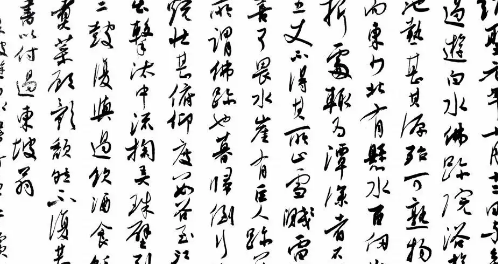 元年十月十二日與
過遊白水佛跡院浴
池熱甚其源殆可熟物
而東少北有懸水百仞
折處輒為潭深者
五丈不得其所止雪濺雷
喜可畏水崖有巨人跡
所謂佛跡也暮歸倒行
燒壯甚俯仰度數谷至江
出擊汰中流掬弄珠璧到
二鼓復與過飲酒食餘
煮菜顧影頹然不復甚
書以付過東坡翁